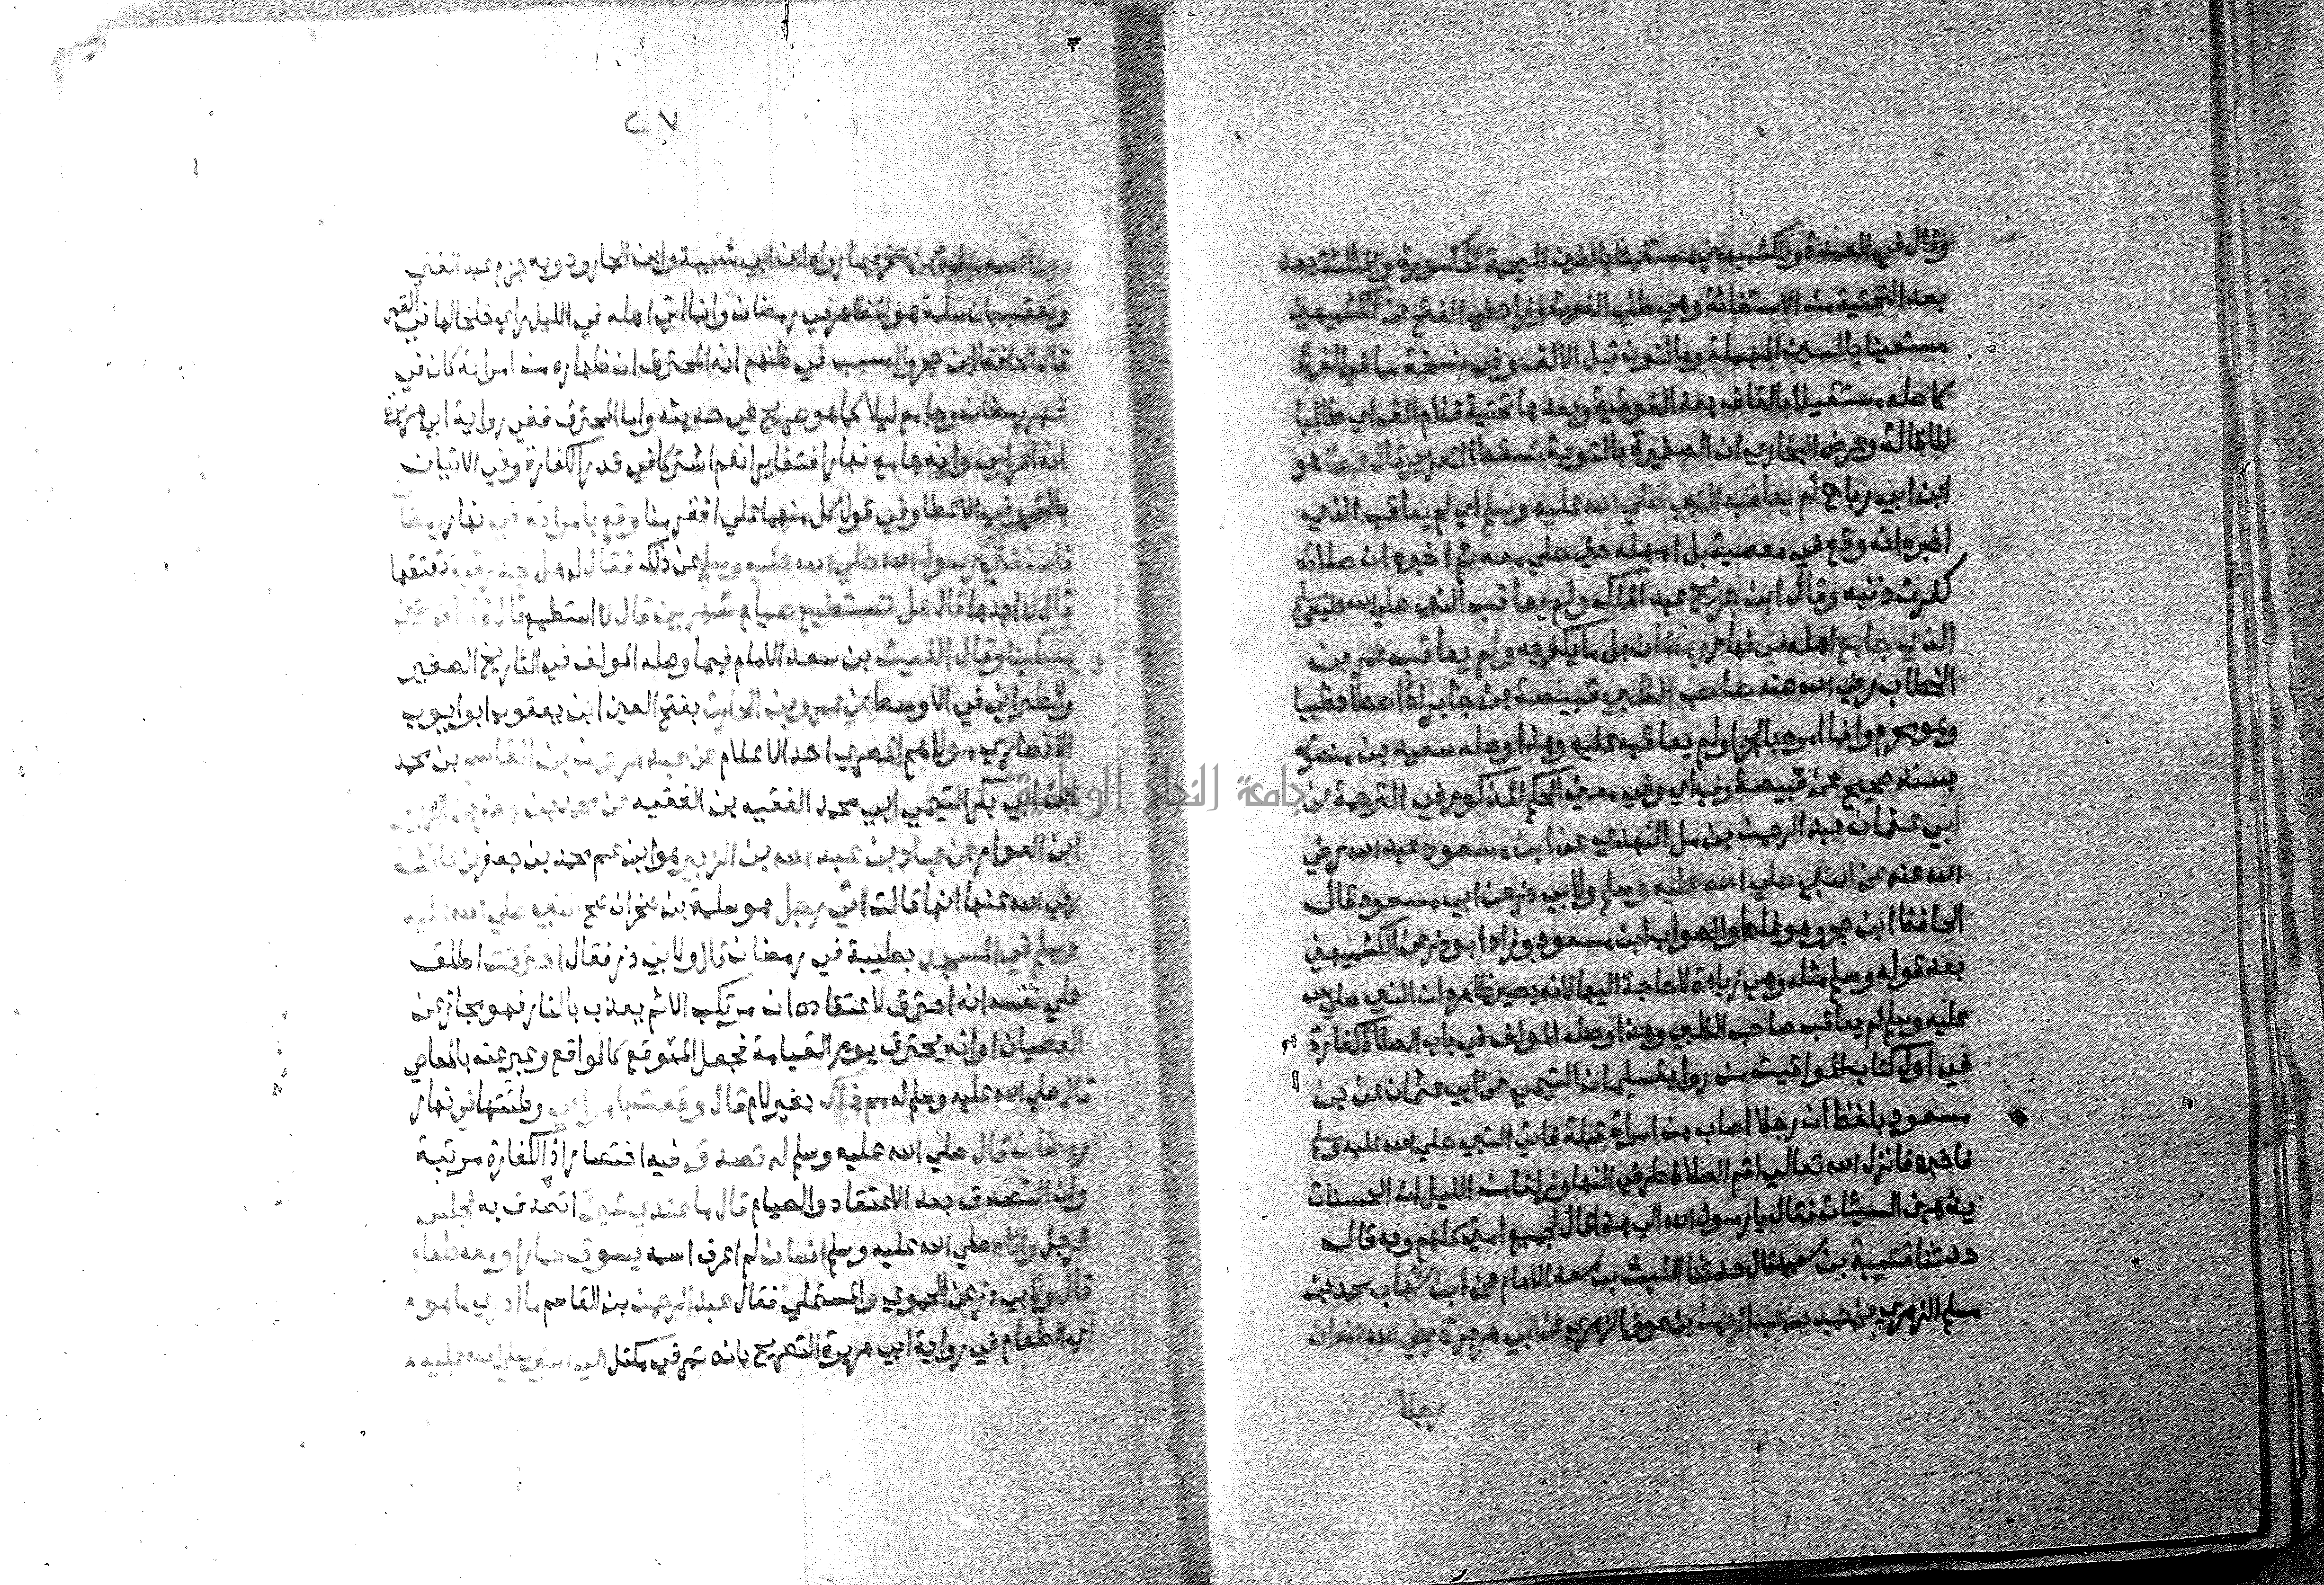 وقال في العمدة والكشميهني مستغيثا بالغين المعجمة المكسورة والمثلثة بعد
بعد التحتية من الاستغاثة وهي طلب الغوث وزاد في الفتح عن الكشميهني
مستعينا بالسين المهملة وبالنون قبل الالف وفي نسخة مما في الفرع
كاصله مستقيلا بالقاف بعد الفوقية وبعدها تحتية فلام الف اي طالبا
للاقالة وعرض البخاري ان الصغيرة بالتوبة تسقط التعزير قال عطا هو
ابن ابي رباح لم يعاقب النبي صلي الله عليه وسلم اي لم يعاقب الذي
اخبره انه وقع في معصية بل امهله حتي صلي معه ثم اخبره ان صلاته
كفرت ذنبه وقال ابن جريج عبد الملك ولم يعاقب النبي صلي الله عليه وسلم
الذي جامع اهله في نهار رمضان بل ما يكفر به ولم يعاقب عمر بن
الخطاب رضي الله عنه صاحب الظبي قبيصة بن جابر اذا اصطاد ظبيا
وهو محرم وانما امره بالجزا ولم يعاقبه عليه وهذا وصله سعيد بن منصور
بسند صحيح عن قبيصة وفيه اي وفي معني الحكم المذكور في الترجمة عن
ابي عثمان عبد الرحمن بن مل النهدي عن ابن مسعود عبد الله رضي
الله عنه عن النبي صلي الله عليه وسلم ولابي ذر عن ابي مسعود قال
الحافظ ابن حجر وهو غلط والصواب ابن مسعود وزاد ابو ذر عن الكشميهني
بعد قوله وسلم مثله وهي زيادة لا حاجة اليها لانه يصير ظاهره ان النبي صلي الله
عليه وسلم لم يعاقب صاحب الظبي وهذا وصله المولف في باب الصلاة كفارة
في اول كتاب المواقيت من رواية سليمان التيمي عن ابي عثمان عن بن
مسعود بلفظ ان رجلا اصاب من امراة قبلة فاتي النبي صلي الله عليه وسلم
فاخبره فانزل الله تعالي اقم الصلاة طرفي النهار وزلفا من الليل ان الحسنات
يذهبن السيئات فقال يا رسول الله الي هذا قال لجميع امتي كلهم وبه قال
حدثنا قتيبة بن سعيد قال حدثنا الليث بن سعد الامام عن ابن شهاب محمد بن
مسلم الزهري عن حميد بن عبد الرحمن بن عوف الزهري عن ابي هريرة رضي الله عنه ان
رجلا
٢٧
رجلا اسمه سلمة بن صخر فيما رواه ابن ابي شيبة وابن الجارود وبه جزم عبد الغني
وتعقب بان سلمة هو المظاهر في رمضان وانما اتي اهله في الليل راي خلخالها في القمر
قال الحافظ ابن حجر والسبب في ظنهم انه المحترق ان ظهاره من امراته كان في
شهر رمضان وجامع ليلا كما هو صريح في حديثه واما المحترق ففي رواية ابي هريرة
انه اعرابي وانه جامع نهارا فتغايرا نعم اشتركا في قدر الكفارة وفي الاتيان
بالتمر وفي الاعطا وفي قول كل منهما علي افقر منا وقع بامراته في نهار رمضان
فاستفتي رسول الله صلي الله عليه وسلم عن ذلك فقال له هل تجد رقبة تعتقها
قال لا اجدها قال هل تستطيع صيام شهرين قال لا استطيع قال فاطعم ستين
مسكينا وقال الليث بن سعد الامام فيما وصله المولف في التاريخ الصغير
والطبراني في الاوسط عن عمرو بن الحارث بفتح العين ابن يعقوب ابو ايوب
الانصاري مولاهم المصري احد الاعلام عن عبد الرحمن بن القاسم بن محمد
ابن ابي بكر التيمي ابي محمد الفقيه بن الفقيه عن محمد بن جعفر بن الزبير
ابن العوام عن عباد بن عبد الله بن الزبير هو ابن عم محمد بن جعفر عن عائشة
رضي الله عنها انها قالت اتي رجل هو سلمة بن صخر ان صح النبي صلي الله عليه
وسلم في المسجد بطيبة في رمضان قال ولابي ذر فقال احترقت اطلق
علي نفسه انه احترق لاعتقاده ان مرتكب الاثم يعذب بالنار فهو مجاز عن
العصيان او انه يحترق يوم القيامة فجعل المتوقع كالواقع وعبر عنه بالماضي
قال صلي الله عليه وسلم له مم ذاك بغير لام قال وقعت بامراتي وطئتها في نهار
رمضان قال صلي الله عليه وسلم له تصدق فيه اختصار اذ الكفارة مرتبة
وان التصدق بعد الاعتقاد والصيام قال ما عندي شيئ اتصدق به فجلس
الرجل واتاه صلي الله عليه وسلم انسان لم اعرف اسمه يسوق حمارا ومعه طعام
قال ولابي ذر عن الحموي والمستملي فقال عبد الرحمن بن القاسم ما ادري ما هو
اي الطعام في رواية ابي هريرة التصريح بانه تمر في مكتل الي النبي صلي الله عليه
جامعة النجاح الوطنية